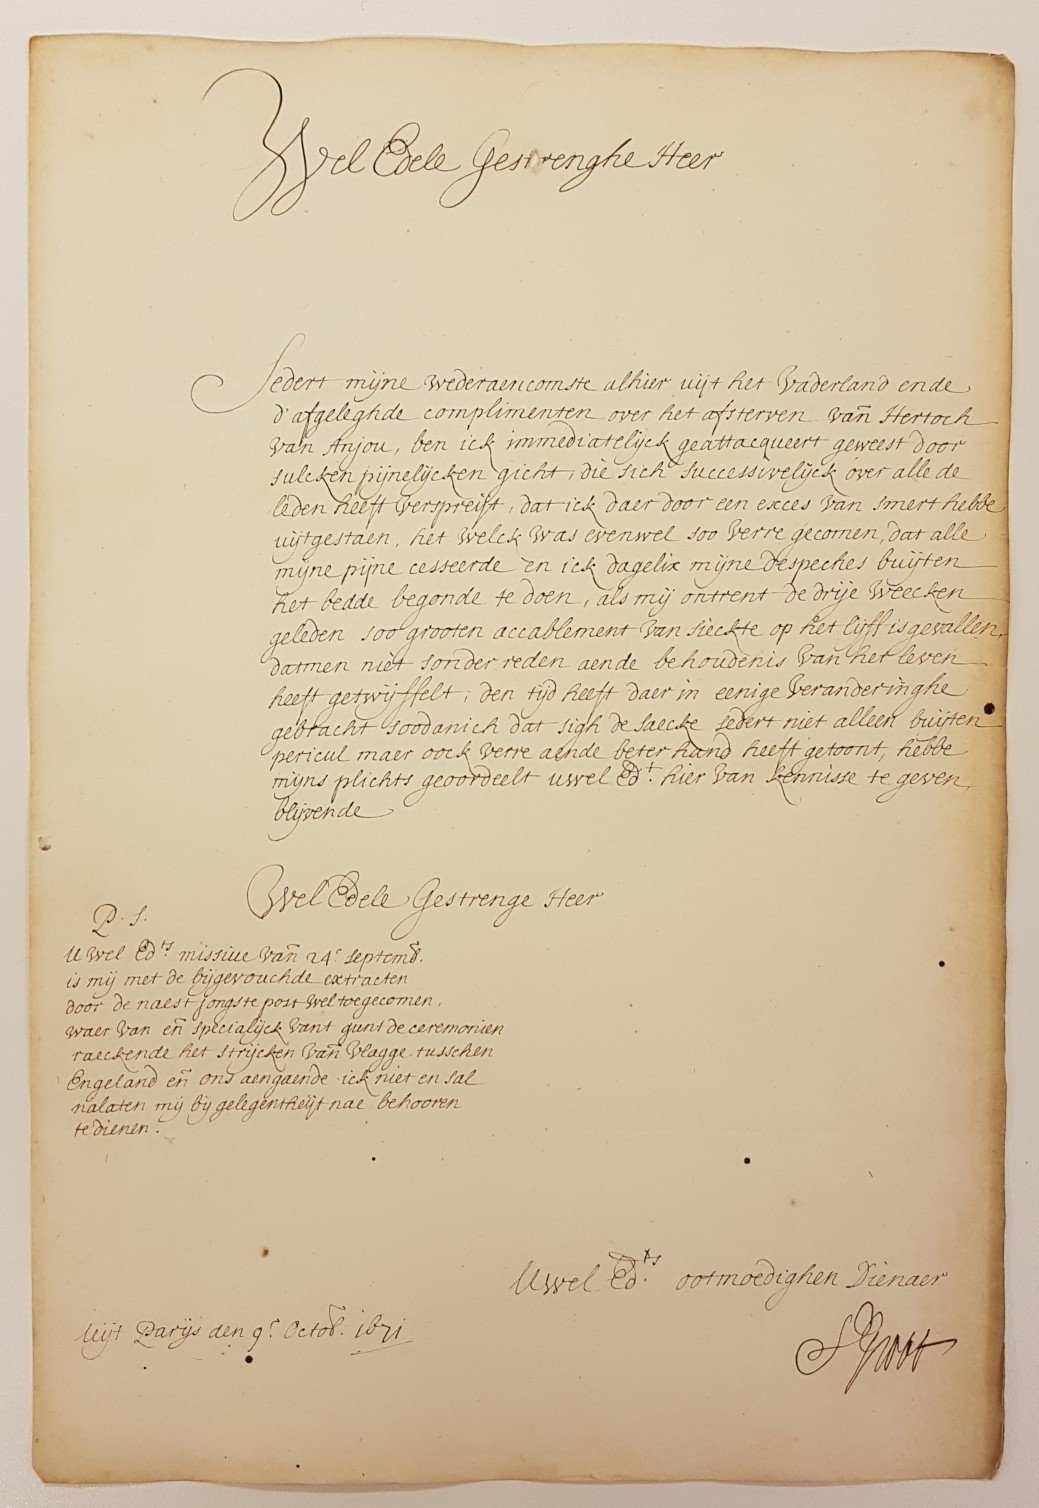 Wel Edele Gestrenghe Heer
Sedert mijne wederaencomste alhier uijt het Vaderland ende
d'afgeleghde complimenten over het afsterven van̄ Hertoch
van Anjou, ben ick immediatelijck geattacqueert geweest door
sulcken pijnelijcken gicht, die sich successivelijck over alle de
leden heeft verspreijt, dat ick daer door een exces van smert hebbe
uijtgestaen, het welck was evenwel soo verre gecomen, dat alle
mijne pijne cesseerde en ick dagelix mijne despeches buijten
het bedde begonde te doen, als mij ontrent de drije weecken
geleden soo grooten accablement van sieckte op het lijff is gevallen,
datmen niet sonder reden aende behoudenis van het leven
heeft getwijffelt, den tijd heeft daer in eenige veranderinghe
gebracht soodanich dat sigh de saecke sedert niet alleen buijten
pericul maer oock verre aende beter hand heeft getoont, hebbe
mijns plichts geoordeelt uwel Edt. hier van kennisse te geven,
blijvende
Wel Edele Gestrenge Heer
P. S.
Uwel Edts missive van̄ 24e septemb̄.
is mij met de bijgevouchde extracten
door de naest jongste post wel toegecomen,
waer van en̄ specialijck vant gunt de ceremonien
raeckende het strijcken van̄ vlagge tusschen
Engeland en̄ ons aengaende ick niet en sal
nalaten mij bij gelegentheijt nae behooren
te dienen.
Uwel Edts. ootmoedighen Dienaer
Uijt Parijs den 9e Octob̄. 1671
P Groot